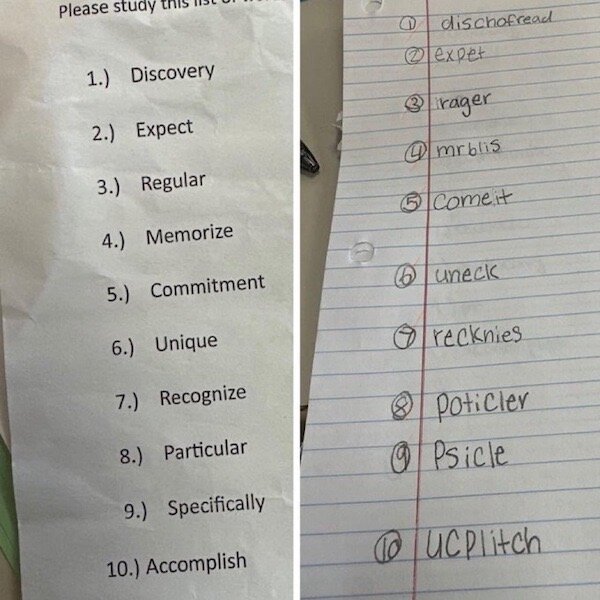 Please study this list of
1.) Discovery
2.) Expect
3.) Regular
4.) Memorize
5.) Commitment
6.) Unique
7.) Recognize
8.) Particular
9.) Specifically
10.) Accomplish
① dischofread
② expet
③ rager
④ mrblis
⑤ comeit
⑥ uneck
⑦ recknies
⑧ poticler
⑨ Psicle
⑩ UCPlitch